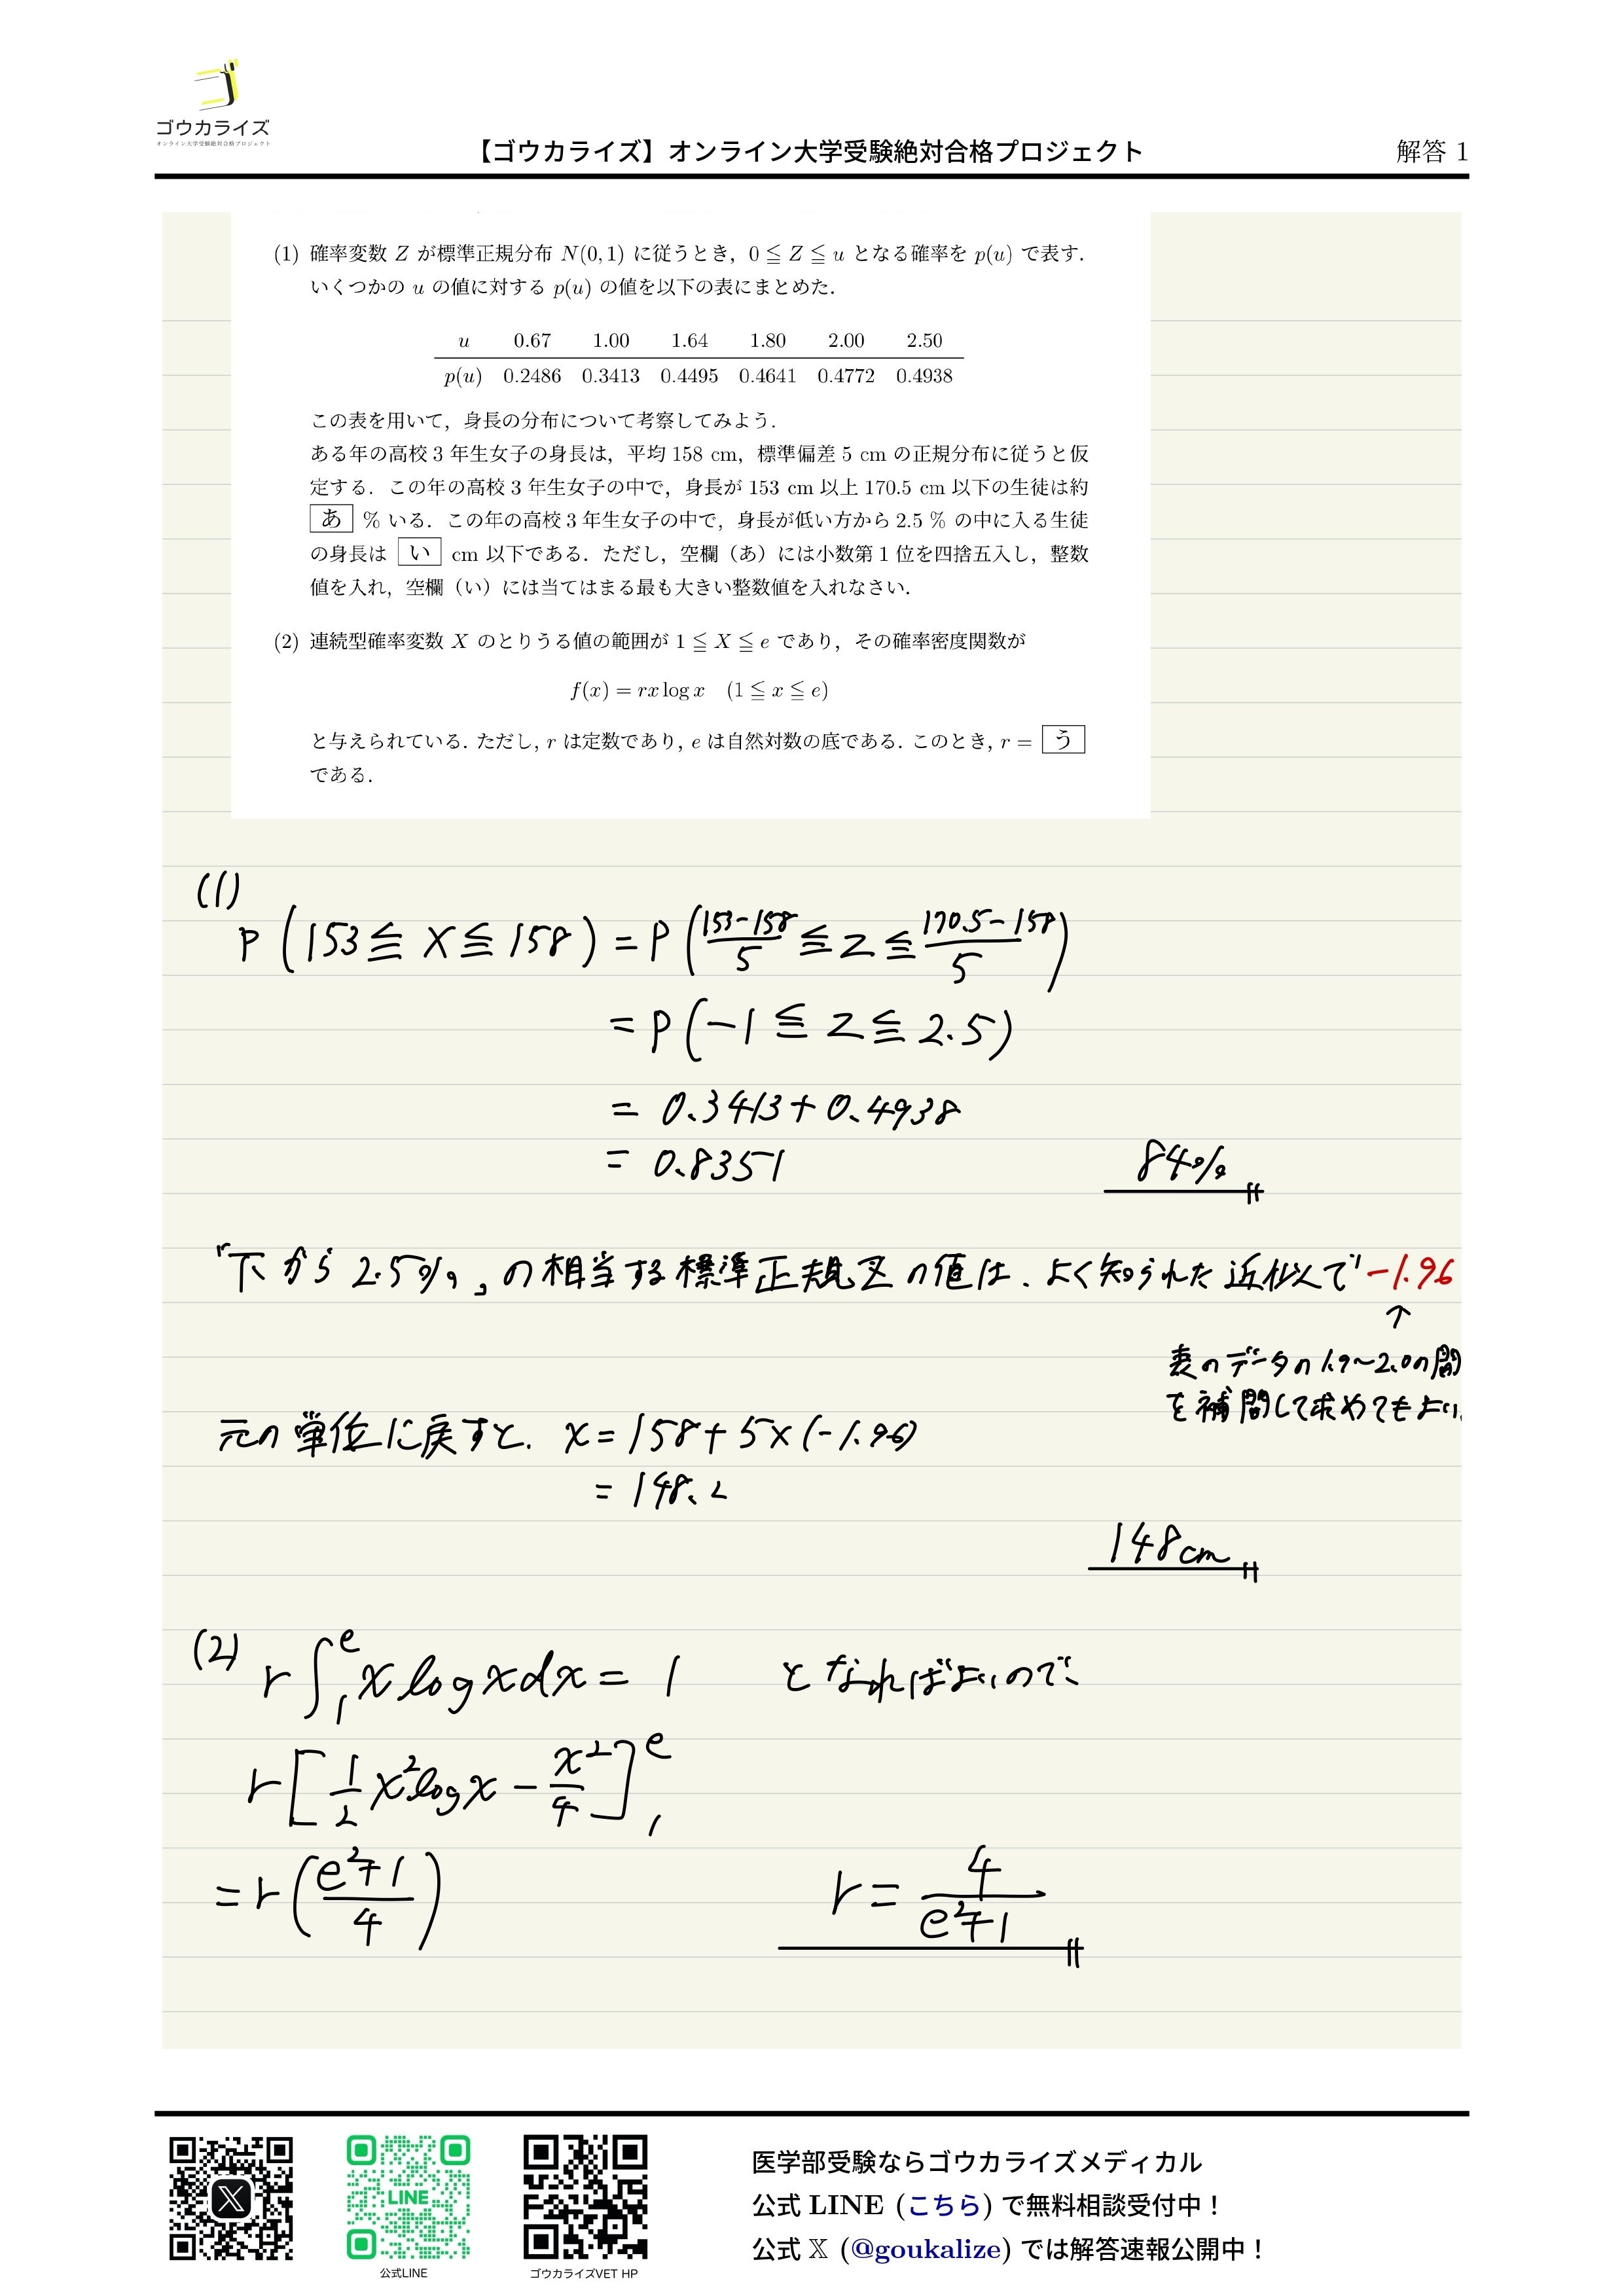 ゴウカライズ
オンライン大学受験絶対合格プロジェクト
【ゴウカライズ】オンライン大学受験絶対合格プロジェクト
解答 1
(1) 確率変数 Z が標準正規分布 N(0, 1) に従うとき，0 ≦ Z ≦ u となる確率を p(u) で表す．
いくつかの u の値に対する p(u) の値を以下の表にまとめた．
u 0.67 1.00 1.64 1.80 2.00 2.50
p(u) 0.2486 0.3413 0.4495 0.4641 0.4772 0.4938
この表を用いて，身長の分布について考察してみよう．
ある年の高校 3 年生女子の身長は，平均 158 cm，標準偏差 5 cm の正規分布に従うと仮
定する．この年の高校 3 年生女子の中で，身長が 153 cm 以上 170.5 cm 以下の生徒は約
あ % いる．この年の高校 3 年生女子の中で，身長が低い方から 2.5 % の中に入る生徒
の身長は い cm 以下である．ただし，空欄（あ）には小数第 1 位を四捨五入し，整数
値を入れ，空欄（い）には当てはまる最も大きい整数値を入れなさい．
(2) 連続型確率変数 X のとりうる値の範囲が 1 ≦ X ≦ e であり，その確率密度関数が
f(x) = rx log x (1 ≦ x ≦ e)
と与えられている．ただし，r は定数であり，e は自然対数の底である．このとき，r = う
である．
(1)
P(153 ≦ X ≦ 158) = P((153-158)/5 ≦ Z ≦ (170.5-158)/5)
= P(-1 ≦ Z ≦ 2.5)
= 0.3413 + 0.4938
= 0.8351
84%
"下から 2.5%〟の相当する標準正規Zの値は、よく知られた近似で -1.96
↑
表のデータの1.9〜2.0の間
を補間して求めてもよい.
元の単位に戻すと. x = 158 + 5×(-1.96)
= 148.2
148cm
(2) r∫₁ᵉ x log x dx = 1 となればよいので、
r[1/2 x² log x - x²/4]₁ᵉ
= r((e²+1)/4)
r = 4/(e²+1)
LINE
公式LINE
ゴウカライズVET HP
医学部受験ならゴウカライズメディカル
公式 LINE (こちら) で無料相談受付中！
公式 𝕏 (@goukalize) では解答速報公開中！